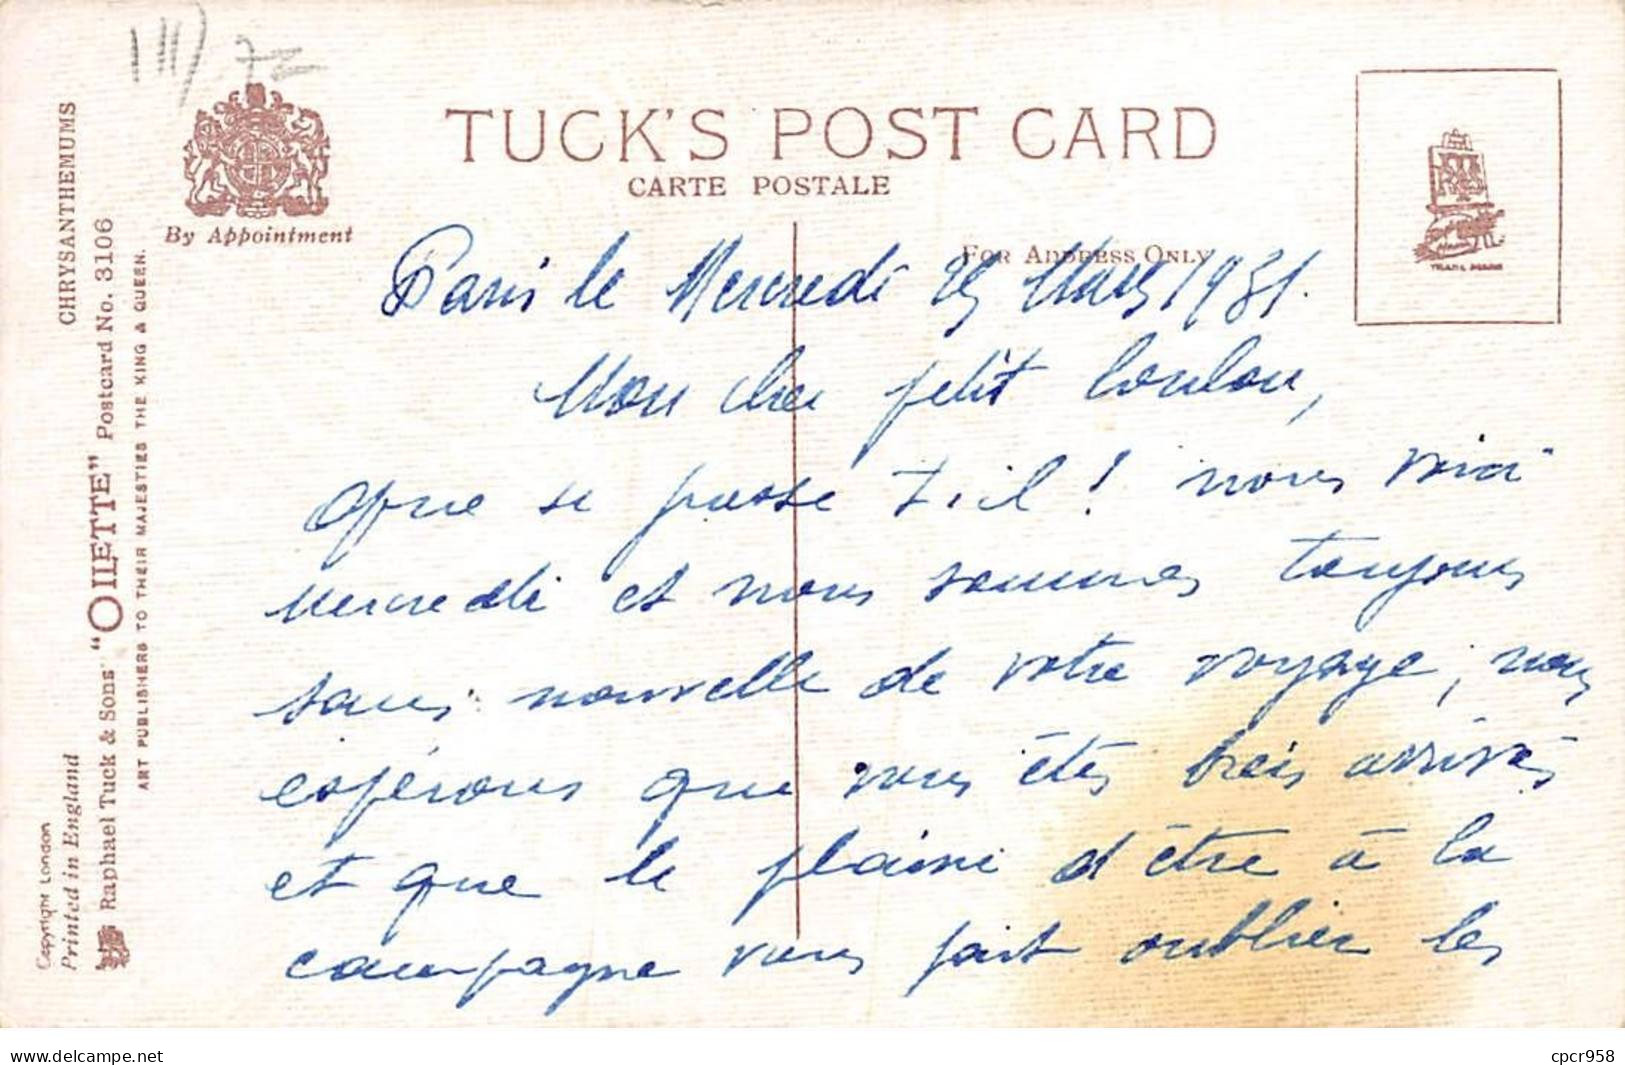 TUCK'S POST CARD
CARTE POSTALE
By Appointment
FOR ADDRESS ONLY
CHRYSANTHEMUMS
Raphael Tuck & Sons' "OILETTE" Postcard No. 3106
ART PUBLISHERS TO THEIR MAJESTIES THE KING & QUEEN.
Copyright London
Printed in England
TRADE MARK
Paris le Mercredi 25 Mars 1931.
Mon cher petit Loulou,
Que se passe t-il! nous voici
Mercredi et nous sommes toujours
sans nouvelle de votre voyage, nous
espérons que vous êtes bien arrivés
et que le plaisir d'être à la
campagne vous fait oublier les
delcampe.net
cpcr958